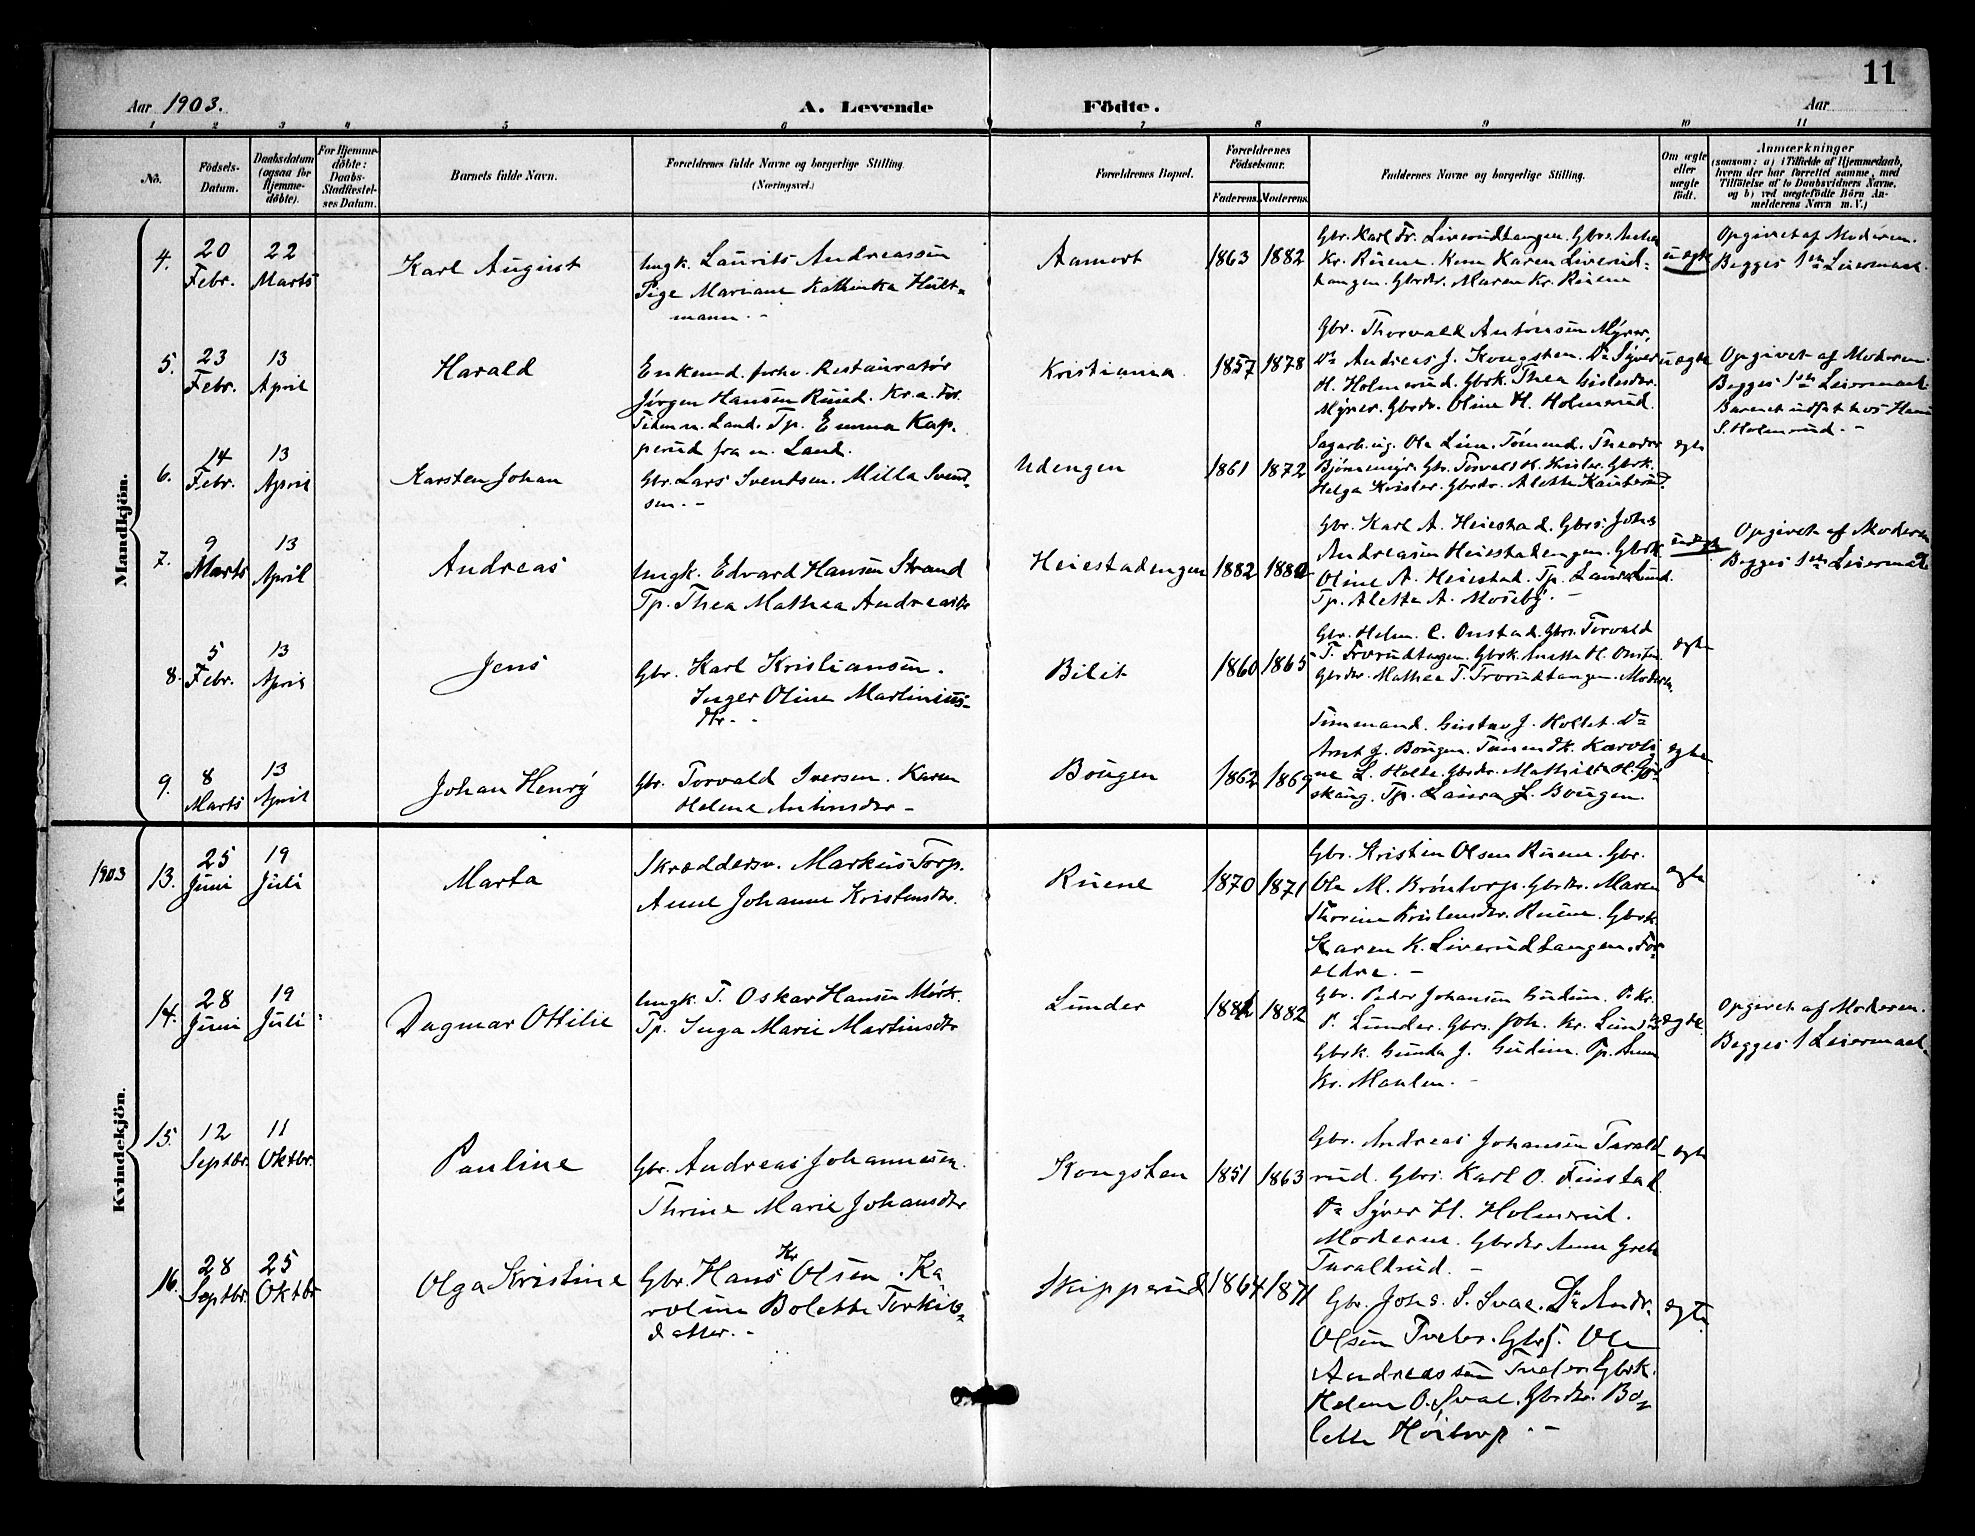 11
Aar 1903.
A. Levende
Födte.
Aar
1 2 3 4 5 6 7 8 9 10 11
No.
Födsels-
Datum.
Daabsdatum
(ogsaa for
Hjemme-
döbte).
For Hjemme-
döbte:
Daabs-
Stadfæstel-
ses Datum.
Barnets fulde Navn.
Forældrenes fulde Navne og borgerlige Stilling.
(Næringsvei.)
Forældrenes Bopæl.
Forældrenes
Födselsaar.
Faderens.
Moderens.
Faddernes Navne og borgerlige Stilling.
Om ægte
eller
uægte
födt.
Anmærkninger
(saasom: a) i Tilfælde af Hjemmedaab,
hvem der har forrettet samme, med
Tilföielse af to Daabsvidners Navne,
og b) ved uægtefödte Börn An-
melderens Navn m. V.)
Mandkjön.
4.
20
Febr.
22
Marts
Karl August
Ungk. Laurits Andreassen
Pige Mariane Kathinka Hult-
mann. -
Aamort
1863
1882
Gbr. Karl Fr. Liverudtangen. Gbrs.
Kr. Ruene. Kone Karen Liverud-
tangen. Gbrdr. Maren Kr. Ruene
uægte
Opgivet af Moderen.
Begges 1en Leiermaal.
5.
23
Febr.
13
April
Harald
Enkemd. forhv. Restauratør
Jørgen Hansen Ruud. Kr.a. For.
Land. Tp. Emma Kap-
perud fra n. Land.
Kristiania
1857
1878
Gbr. Thorvald Antonsen Myrer,
Do Andreas J. Kongsten. Do Syver
H. Holmerud. Gbrk. Thea Gislesdr.
Myrer. Gbrdr. Oline H. Holmerud.
uægte
Opgivet af Moderen.
Begges 1en Leiermaal.
Barnet udsat hos Hans
S. Holmerud. -
6.
14
Febr.
13
April
Karsten Johan
Gbr. Lars Svendsen. Milla Svend-
sen. -
Udengen
1861
1872
Sagarb. ug. Ole Lien. Tømmd. Theodor
Bjønnemyr. Gbr. Torvald H. Kvisler. Gbrk.
Helga Kvisler. Gbrdr. Alette
ægte
7.
9
Marts
13
April
Andreas
Ungk. Edvard Hansen Strand
Tp. Thea Mathea Andreasdr
Heiestadengen
1882
188
Gbr. Karl A. Heiestad. Gbrs. Johs
Andreasen Heiestadengen. Gbrk
Oline A. Heiestad. Tp. Laura Lund.
Tp. Alette A. Moseby. -
uægte
Opgivet af Moderen
Begges 1en Leiermaal
8.
5
Febr.
13
April
Jens
Gbr. Karl Kristiansen.
Inger Oline Martinius-
dtr. -
Bilit
1860
1865
Gbr. Helm. C. Onstad. Gbrs. Torvald
T. Frorudtangen. Gbrk. Anette H. Onstad.
Gbrdr. Mathea T. Frorudtangen. Moderen.
ægte
9.
8
Marts
13
April
Johan Henry
Gbr. Torvald Iversen. Karen
Helene Antonsdtr -
Bougen
1862
1869
Tømmermand. Gustav J. Holtet. Do
Arnt J. Bougen. Tømmdk. Karoli-
ne L. Holte. Gbrdr. Mathilde H.
skaug. Tp. Laura J. Bougen.
ægte
Kvindekjön.
1903
13.
25
Juni
19
Juli
Marta
Skræddersv. Markus Torp.
Anne Johanne Kristensdtr.
Ruene
1870
1871
Gbr. Kristen Olsen Ruene. Gbr.
Ole M. Brøntorp. Gbrdr. Maren
Thorine Kristensdtr. Ruene. Gbrk.
Karen K. Liverudtangen. For-
ældre. -
ægte
14.
28
Juni
19
Juli
Dagmar Ottilie
Ungk. T. Oskar Hansen Mørk.
Tp. Inga Marie Martinsdtr
Lunder
188
1882
Gbr. Peder Johansen Gudum. P. Kr.
P. Lunder. Gbrs. Joh. Kr. Lunder
Gbrk. Gunda J. Gudum. Tp. Anne
Kr. Maulen. -
uægte.
Opgivet af Moderen.
Begges 1 Leiermaal.
15.
12
Septbr.
11
Oktbr.
Pauline
Gbr. Andreas Johannesen.
Thrine Marie Johansdtr
Kongsten
1851
1863
Gbr. Andreas Johansen Tarald-
rud. Gbrs. Karl O. Finstad.
Do Syver H. Holmerud.
Moderen. Gbrdtr Anne Grete
Taraldrud. -
ægte
16.
28
Septbr.
25
Oktbr
Olga Kristine
Gbr. Hans Kr Olsen. Ka-
roline Bolette Torkils-
datter. -
Skipperud
1864
1871
Gbr. Johs. S. Svae. Do Andr.
Olsen Tveter. Gbrs. Ole
Andreassen Tveter. Gbrk.
Helene O. Svae. Gbrdtr. Bo-
lette Høitorp. -
ægte.